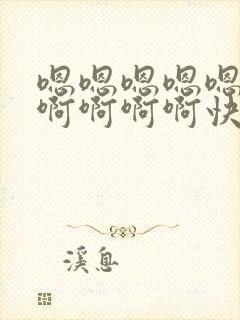 嗯嗯嗯嗯嗯
啊啊啊啊快
溪息